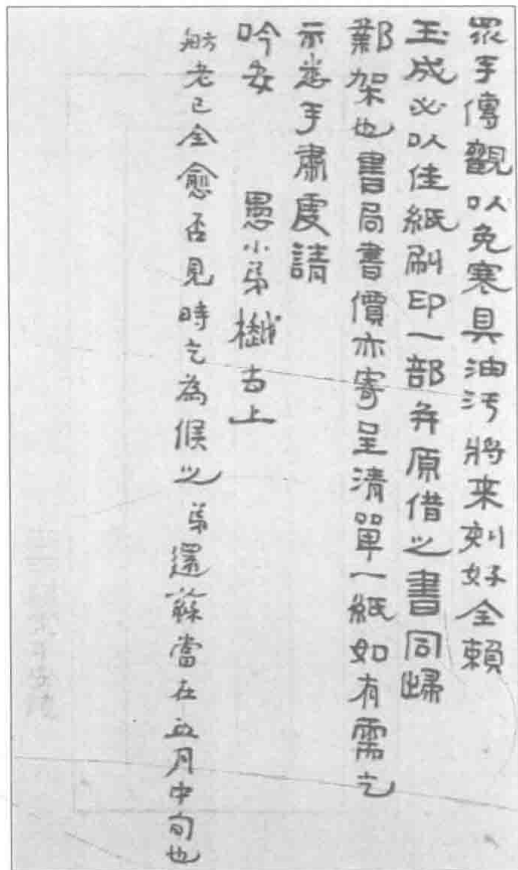 眾手傳觀以免寒具油污將來刻好全賴
玉成必以佳紙刷印一部并原借之書同歸
鄴架也書局書價亦寄呈清單一紙如有需乞
示悉手肅虔請
吟安 愚小弟樾古上
舫老已全愈否見時乞為候之弟還蘇當在五月中旬也